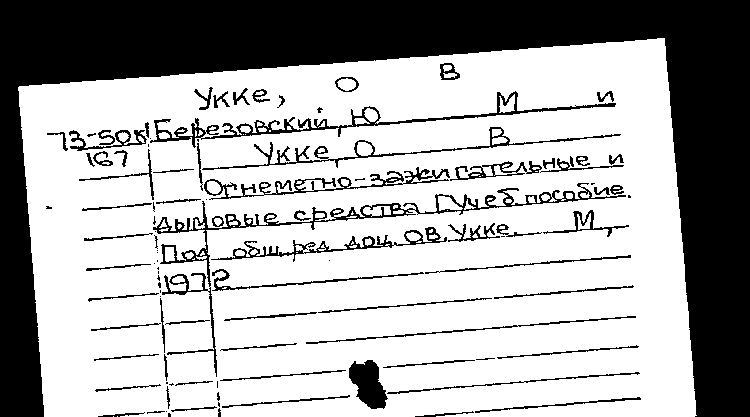 Укке, О В
73-50к Березовский, Ю М и
167 Укке, О В
Огнеметно-зажигательные и
дымовые средства [Учеб пособие.
Под общ. ред доц. О.В. Укке. М,
1972